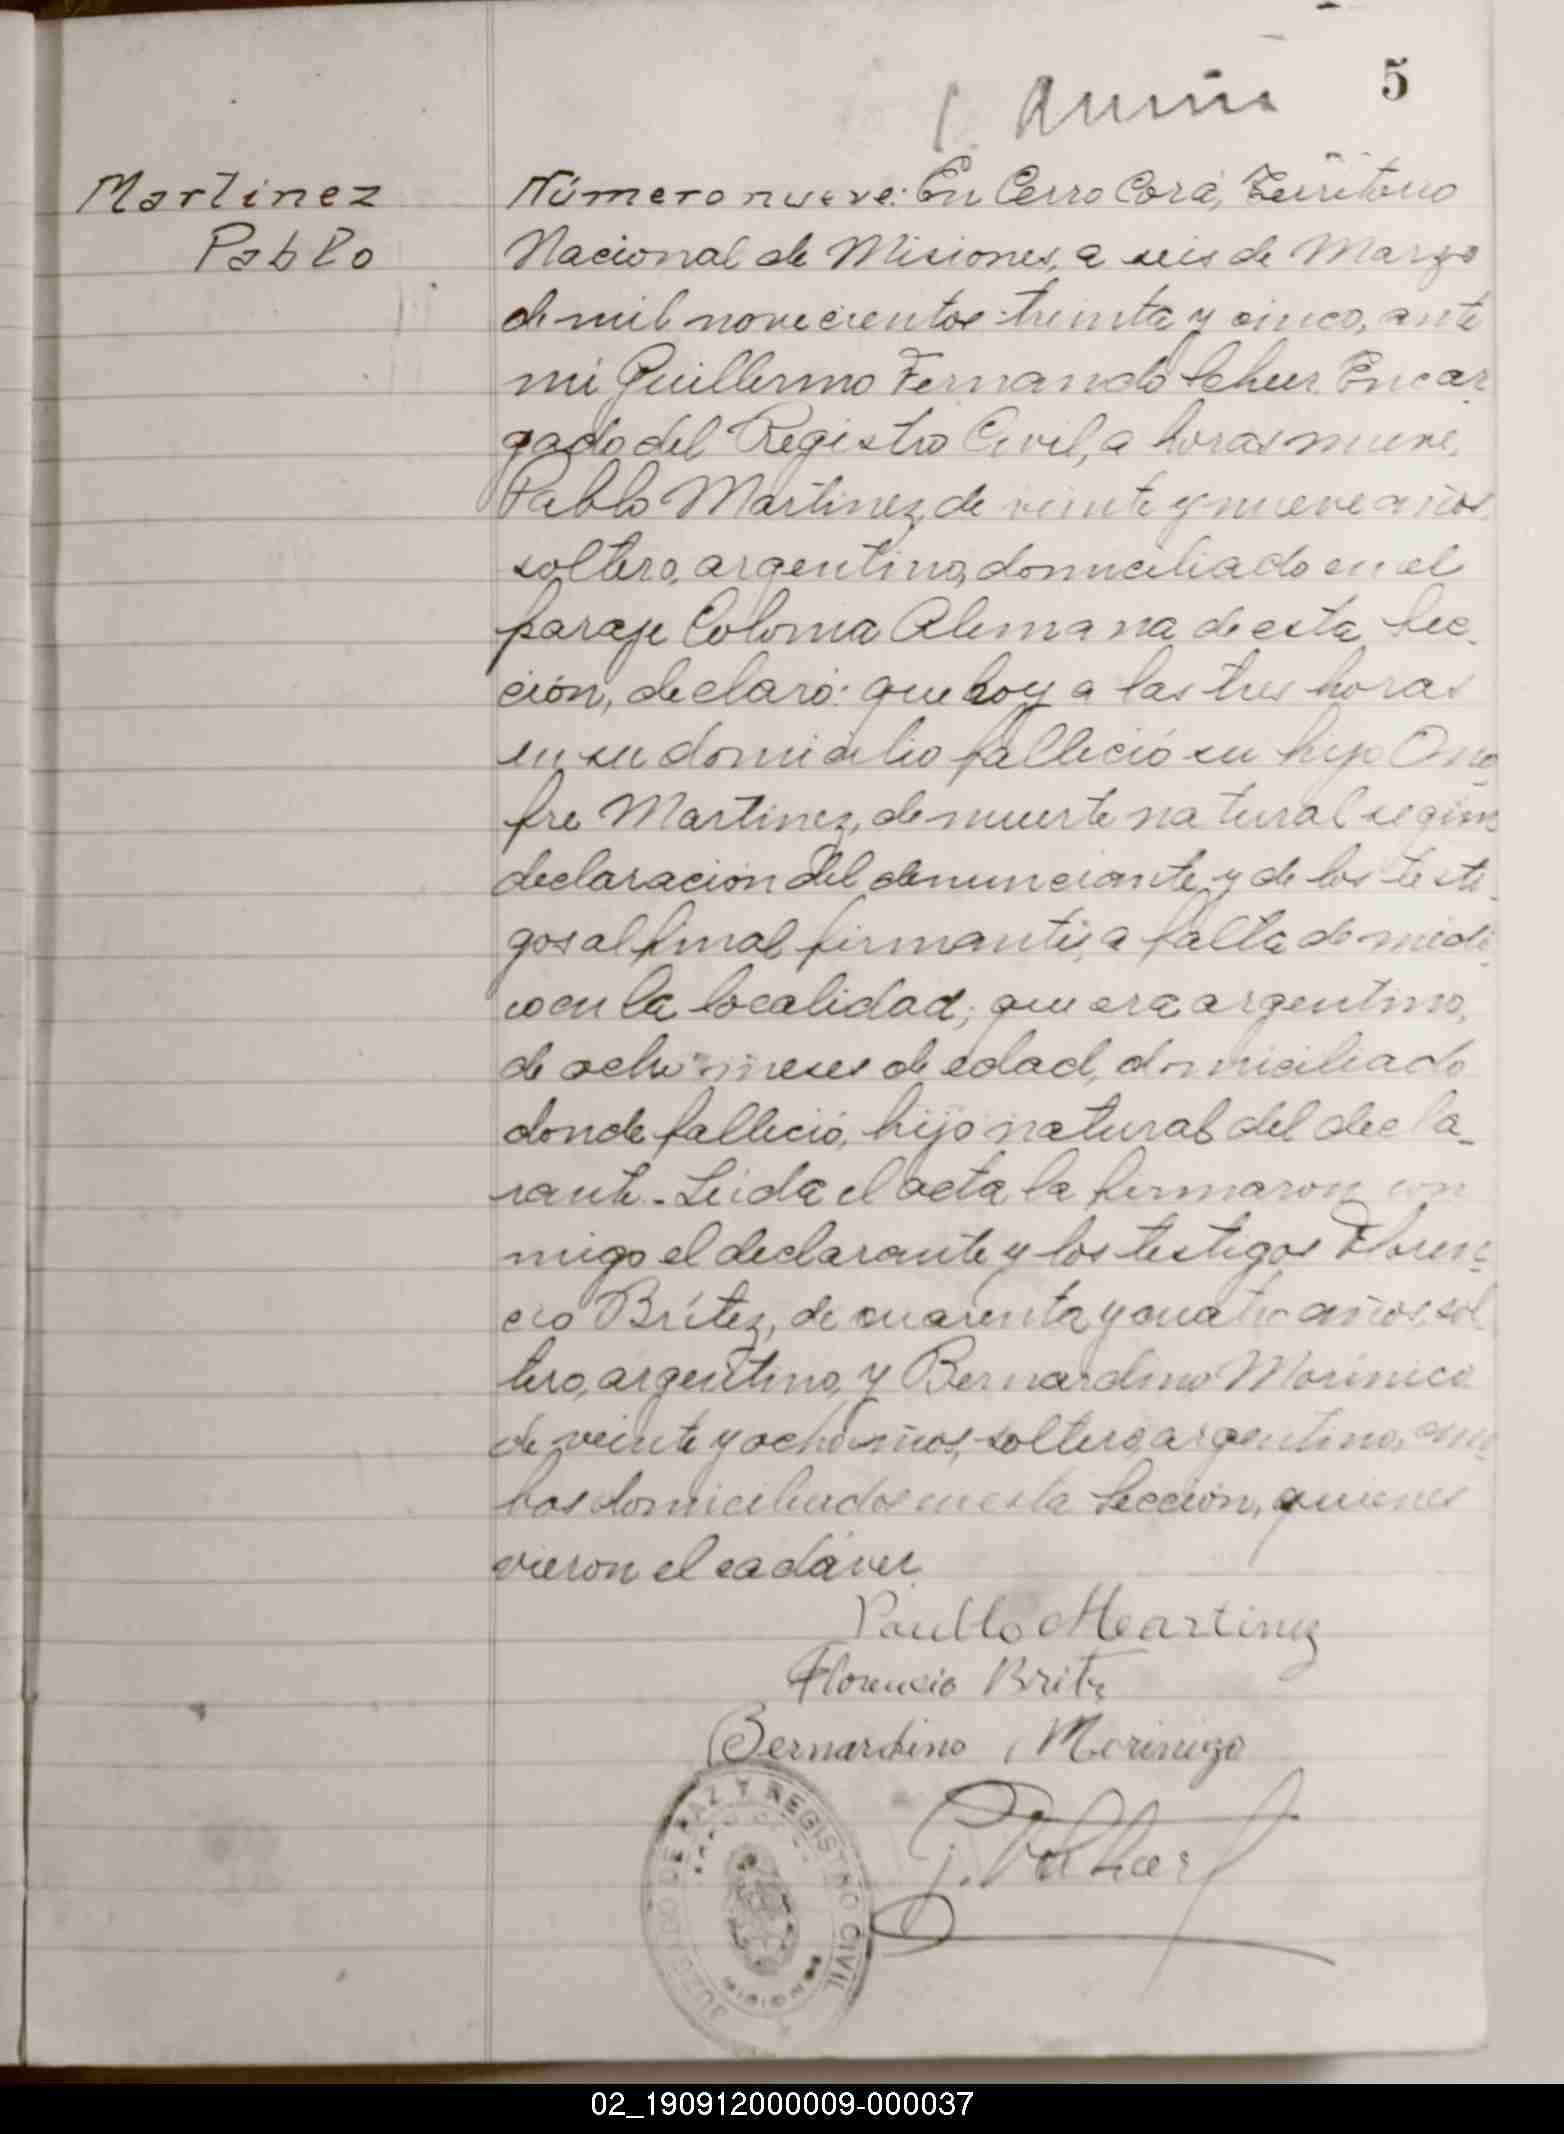 5
Martinez
Pablo
Número nueve: En Cerro Corá, Territorio
Nacional de Misiones, a seis de Marzo
de mil novecientos treinta y cinco, ante
mi Guillermo Fernando Encar
gado del Registro Civil, a horas nueve,
Pablo Martinez, de veinte y nueve años,
soltero, argentino, domiciliado en el
paraje Colonia Alemana de esta Sec-
ción, declaró: que hoy a las tres horas
en su domicilio falleció su hijo Ono-
fre Martinez, de muerte natural según
declaración del denunciante y de los testi-
gos al final firmantes, a falta de médi-
co en la localidad; que era argentino,
de ocho meses de edad, domiciliado
donde falleció, hijo natural del decla-
rante.- Leida el acta la firmaron con
migo el declarante y los testigos Floren-
cio Brítez, de cuarenta y cuatro años, sol-
tero, argentino, y Bernardino Morinico
de veinte y ocho años, soltero, argentino, am-
bos domiciliados en esta Sección, quienes
vieron el cadáver.
Paullo Martinez
Florencio Britz
Bernardino Morinigo
JUZGADO DE PAZ Y REGISTRO CIVIL
02_190912000009-000037